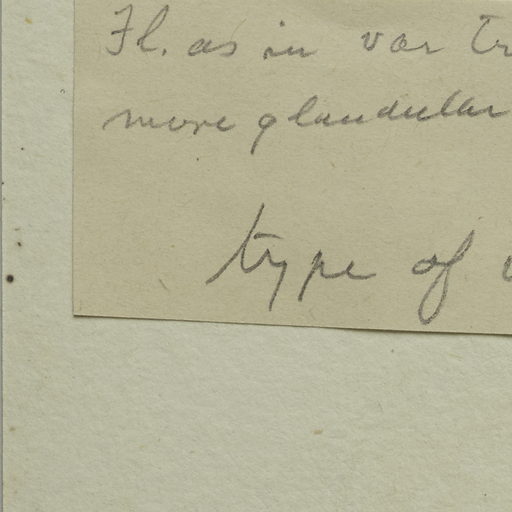 Fl. as in var Tr
more glandular
type of